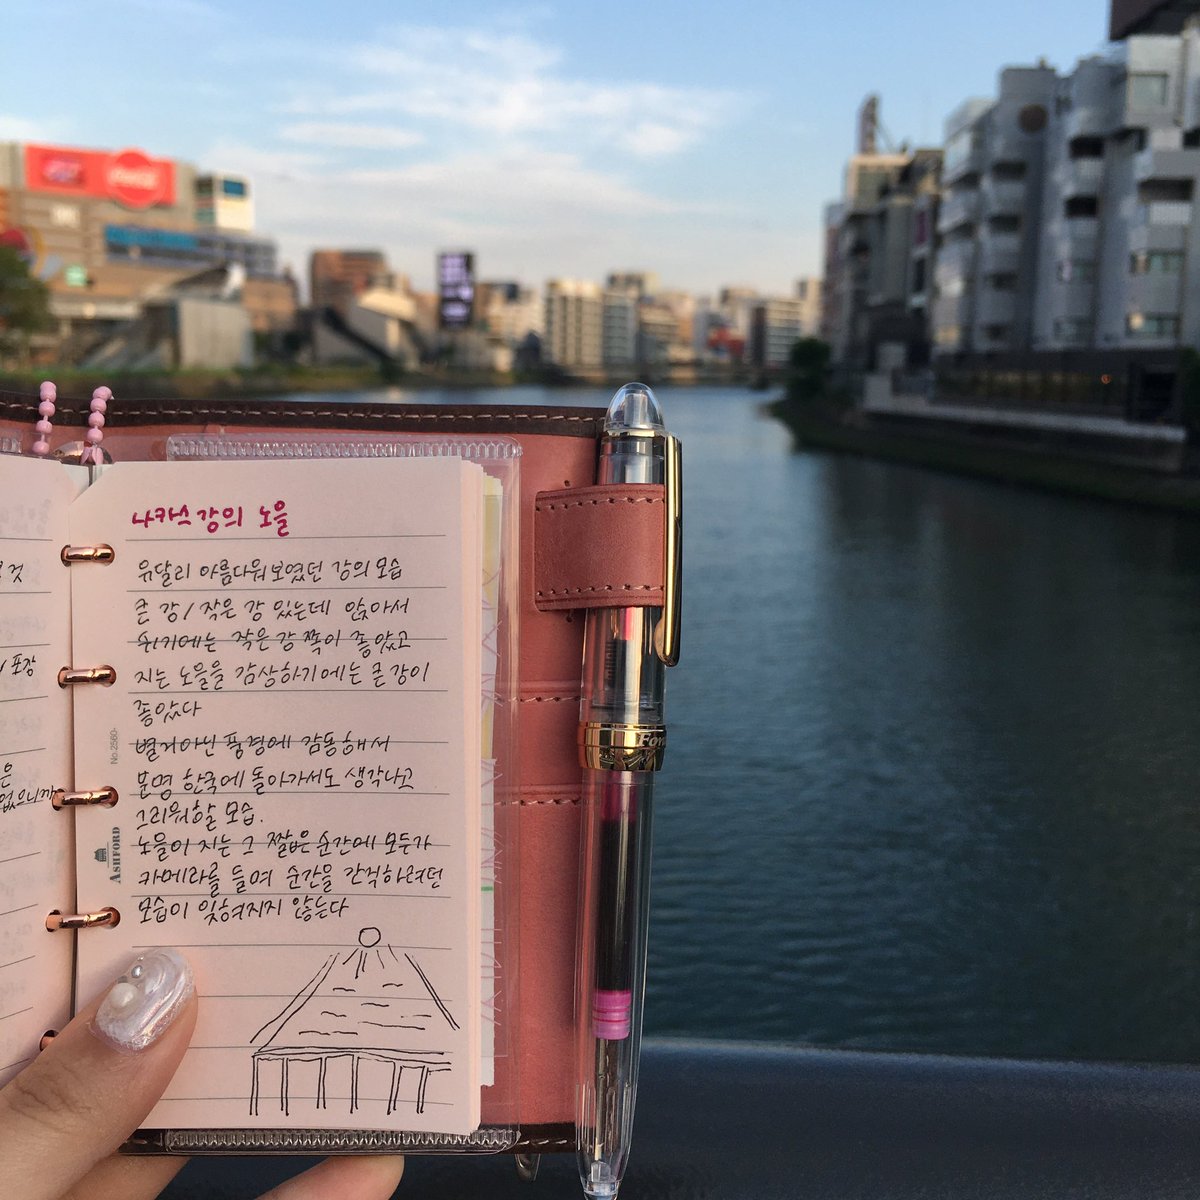 Coca-Cola
것
포장
은
없으니까
나카스 강의 노을
유달리 아름다워보였던 강의 모습
큰 강/작은 강 있는데 앉아서
쉬기에는 작은 강 쪽이 좋았고
지는 노을을 감상하기에는 큰 강이
좋았다
별거아닌 풍경에 감동해서
분명 한국에 돌아가서도 생각나고
그리워할 모습.
노을이 지는 그 짧은 순간에 모두가
카메라를 들며 순간을 간직하려던
모습이 잊혀지지 않는다
No.2560-
ASHFORD